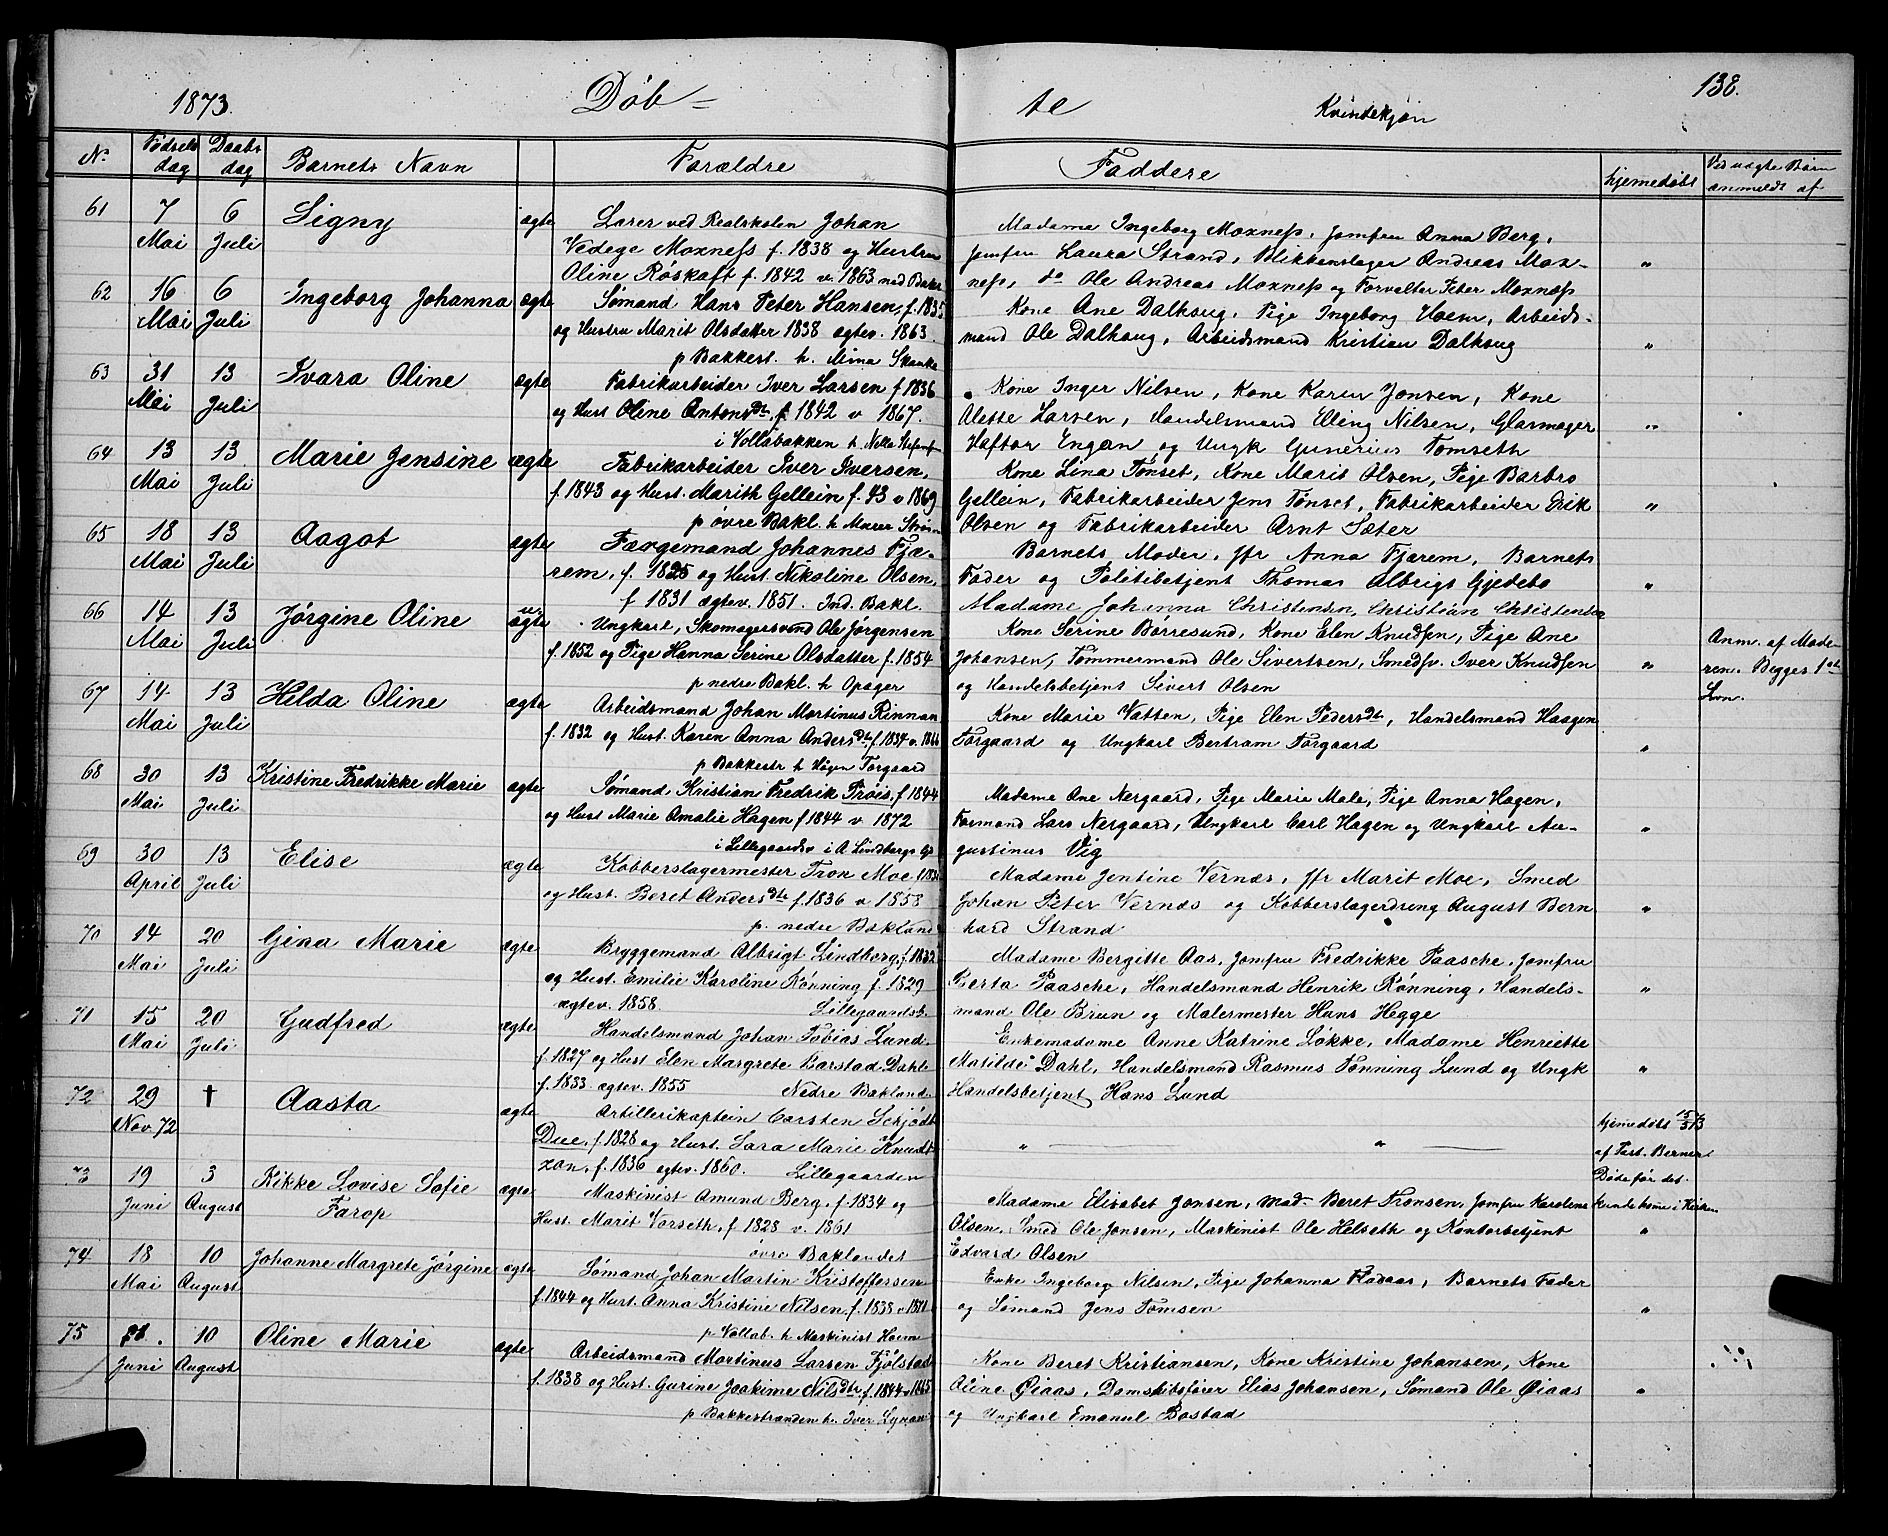 1873.
Døb=
te
Kvindekjøn
138.
No
Fødsels dag
Daabs dag
Barnets Navn
Forældre
Faddere
hjemedøbt
Ved uægte Børn anmeldt af
61
7 Mai
6 Juli
Signy
ægte
Lærer ved Realskolen Johan
Vedege Moxness f. 1838 og Hustru
Oline Røskaft f. 1842 v. 1863 ned Bakl
Madame Ingeborg Moxness, Jomfru Anna Berg,
Jomfru Laura Strand, Blikkenslager Andreas Mox-
ness, do Ole Andreas Moxness og Forvalter Peter Moxness
"
62
16 Mai
6 Juli
Ingeborg Johanna
ægte
Sømand Hans Peter Hansen, f. 1835
og Hustru Marit Olsdatter 1838 ægtev. 1863.
p Bakkest. h. Mima Skanke
Kone Ane Dalhaug, Pige Ingeborg Hoem, Arbeids-
mand Ole Dalhaug, Arbeidsmand Kristian Dalhaug
"
63
31 Mai
13 Juli
Ivara Oline
ægte
Fabrikarbeider Iver Larsen f 1836
og Hust Oline Antonsdt, f 1842 v 1867.
i Vollabakken h Nella
Kone Inger Nilsen, Kone Karen Jonsen, Kone
Alette Larsen, Handelsmand Elling Nilsen, Glarmager
Haftor Engan og Ungk Gunerius Tomseth
"
64
13 Mai
13 Juli
Marie Jensine
ægte
Fabrikarbeider Iver Iversen,
f. 1843 og Hust. Marith Gellein f. 43 v 1869
p øvre Bakl. h Maren Strøm
Kone Lina Tønset, Kone Marit Olsen, Pige Barbro
Gellein, Fabrikarbeider Jens Tønset, Fabrikarbeider Erik
Olsen og Fabrikarbeider Arnt Sæter
"
65
18 Mai
13 Juli
Aagot
ægte
Færgemand Johannes Fjæ-
rem, f. 1825 og Hust. Nikoline Olsen,
f 1831 ægtev. 1851. Ind. Bakl.
Barnets Moder, Jfr Anna Fjærem, Barnets
Fader og Politibetjent Thomas Albrigt Gjedebo
Madame Johanna Christensen, Christian Christensen
"
66
14 Mai
13 Juli
Jørgine Oline
u-ægte
Ungkarl, Skomagersvend Ole Jørgensen
f. 1852 og Pige Hanna Serine Olsdatter f. 1854
p nedre Bakl. h Opager
Kone Serine Børresund, Kone Elen Knudsen, Pige Ane
Johansen, Tømmermand Ole Sivertsen, Smedsv. Iver Knudsen
og Handelsbetjent Sivert Olsen
"
Anm. af Mode-
ren. Begges 1ste
Lem.
67
14 Mai
13 Juli
Hilda Oline
ægte
Arbeidsmand Johan Martinus Rinnan
f. 1832 og Hust. Karen Anna Andersdt f. 1834 v. 1866
p Bakkestr h Hagen Torgaard
Kone Marie Vatten, Pige Elen Pedersdt, Handelsmand Haagen
Torgaard og Ungkarl Bertram Torgaard
"
68
30 Mai
13 Juli
Kristine Fredrikke Marie
ægte
Sømand Kristian Fredrik Frøis, f 1844
og Hust Marie Amalie Hagen f 1844 v 1872
i Lillegaardsv i A. Lindbergs Gd
Madame Ane Nergaard, Pige Marie Male, Pige Anna Hagen,
Formand Lars Nergaard, Ungkarl Carl Hagen og Ungkarl Au-
gustinus Vig
"
69
30 April
13 Juli
Elise
ægte
Kobberslagermester Tron Moe
og Hust. Beret Andersdtr f. 1836 v 1858
p. nedre Bakland
Madame Jentine Vernæs, Jfr Marit Moe, Smed
Johan Peter Vernæs og Kobberslagerdreng August Bern
hard Strand
"
70
14 Mai
20 Juli
Gina Marie
ægte
Bryggemand Albrigt Lindborg, f. 1832
og Hust. Emilie Karoline Rønning f. 1829
ægtev. 1858. Lillegaardsb.
Madame Bergitte Aas, Jomfru Fredrikke Paasche, Jomfru
Berta Paasche, Handelsmand Henrik Rønning, Handels-
mand Ole Brun og Malermester Hans Hegge
"
71
15 Mai
20 Juli
Gudfred
ægte
Handelsmand Johan Tobias Lund
f. 1827 og Hust Elen Margrete Barstad Dahl
f. 1833. ægtev. 1855 Nedre Bakland
Enkemadame Anne Katrine Løkke, Madame Henriette
Matilde Dahl, Handelsmand Rasmus Tønning Lund og Ungk
Handelsbetjent Hans Lund
"
72
29 Nov. 72
†
Aasta
ægte
Artillerikaptein Carsten Schjødt
Due, f. 1828 og Hust. Sara Marie Knudt
zon, f. 1836 ægtev. 1860. Lillegaarden
" "
hjemedøbt 15/3 73
af Past. Berner
Døde før det
kunde komme i Kirken
73
19 Juni
3 August
Rikke Lovise Sofie
Farop
ægte
Maskinist Amund Berg, f. 1834 og
Hust. Marit Vorseth, f 1828 v. 1861
øvre Baklandet
Madame Elisabet Jonsen, Mad- Beret Tronsen, Jomfru Karoline
Olsen, Smed Ole Jonsen, Maskinist Ole Helseth og Kontorbetjent
Edvard Olsen
"
74
18 Mai
10 August
Johanne Margrete Jørgine
ægte
Sømand Johan Martin Kristoffersen
f. 1844 og Hust. Anna Kristine Nilsen, f. 1838 v 1871
p Vollab. h Maskinist Hoem
Enke Ingeborg Nilsen, Pige Johanna Flodaas, Barnets Fader
og Sømand Jens Tomsen
"
75
Juni
10 August
Oline Marie
ægte
Arbeidsmand Martinus Larsen Fjølstad
f. 1838 og Hust. Gurine Joakime Nilsdtr f. 1844 v 1865
p Bakkestranden h. Iver Lynan
Kone Beret Kristiansen, Kone Kristine Johansen, Kone
Oline Øiaas, Damskibsfører Elias Johansen, Sømand Ole Øiaas
og Ungkarl Emanuel Bostad
"